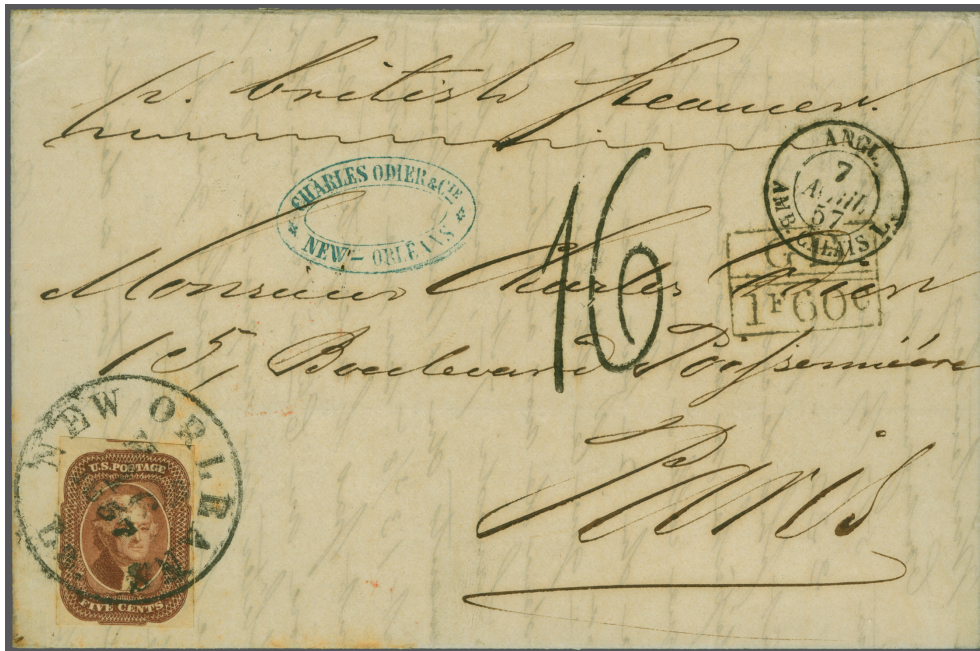 pr. british steamer.
CHARLES ODIER & CIE
NEW-ORLEANS
ANGL.
7
AVRIL
57
AMB. CALAIS
16
GB
1F60C
Monsieur Charles Odier
15, Boulevard Poissonnière
Paris
NEW ORLEANS
U.S. POSTAGE
FIVE CENTS